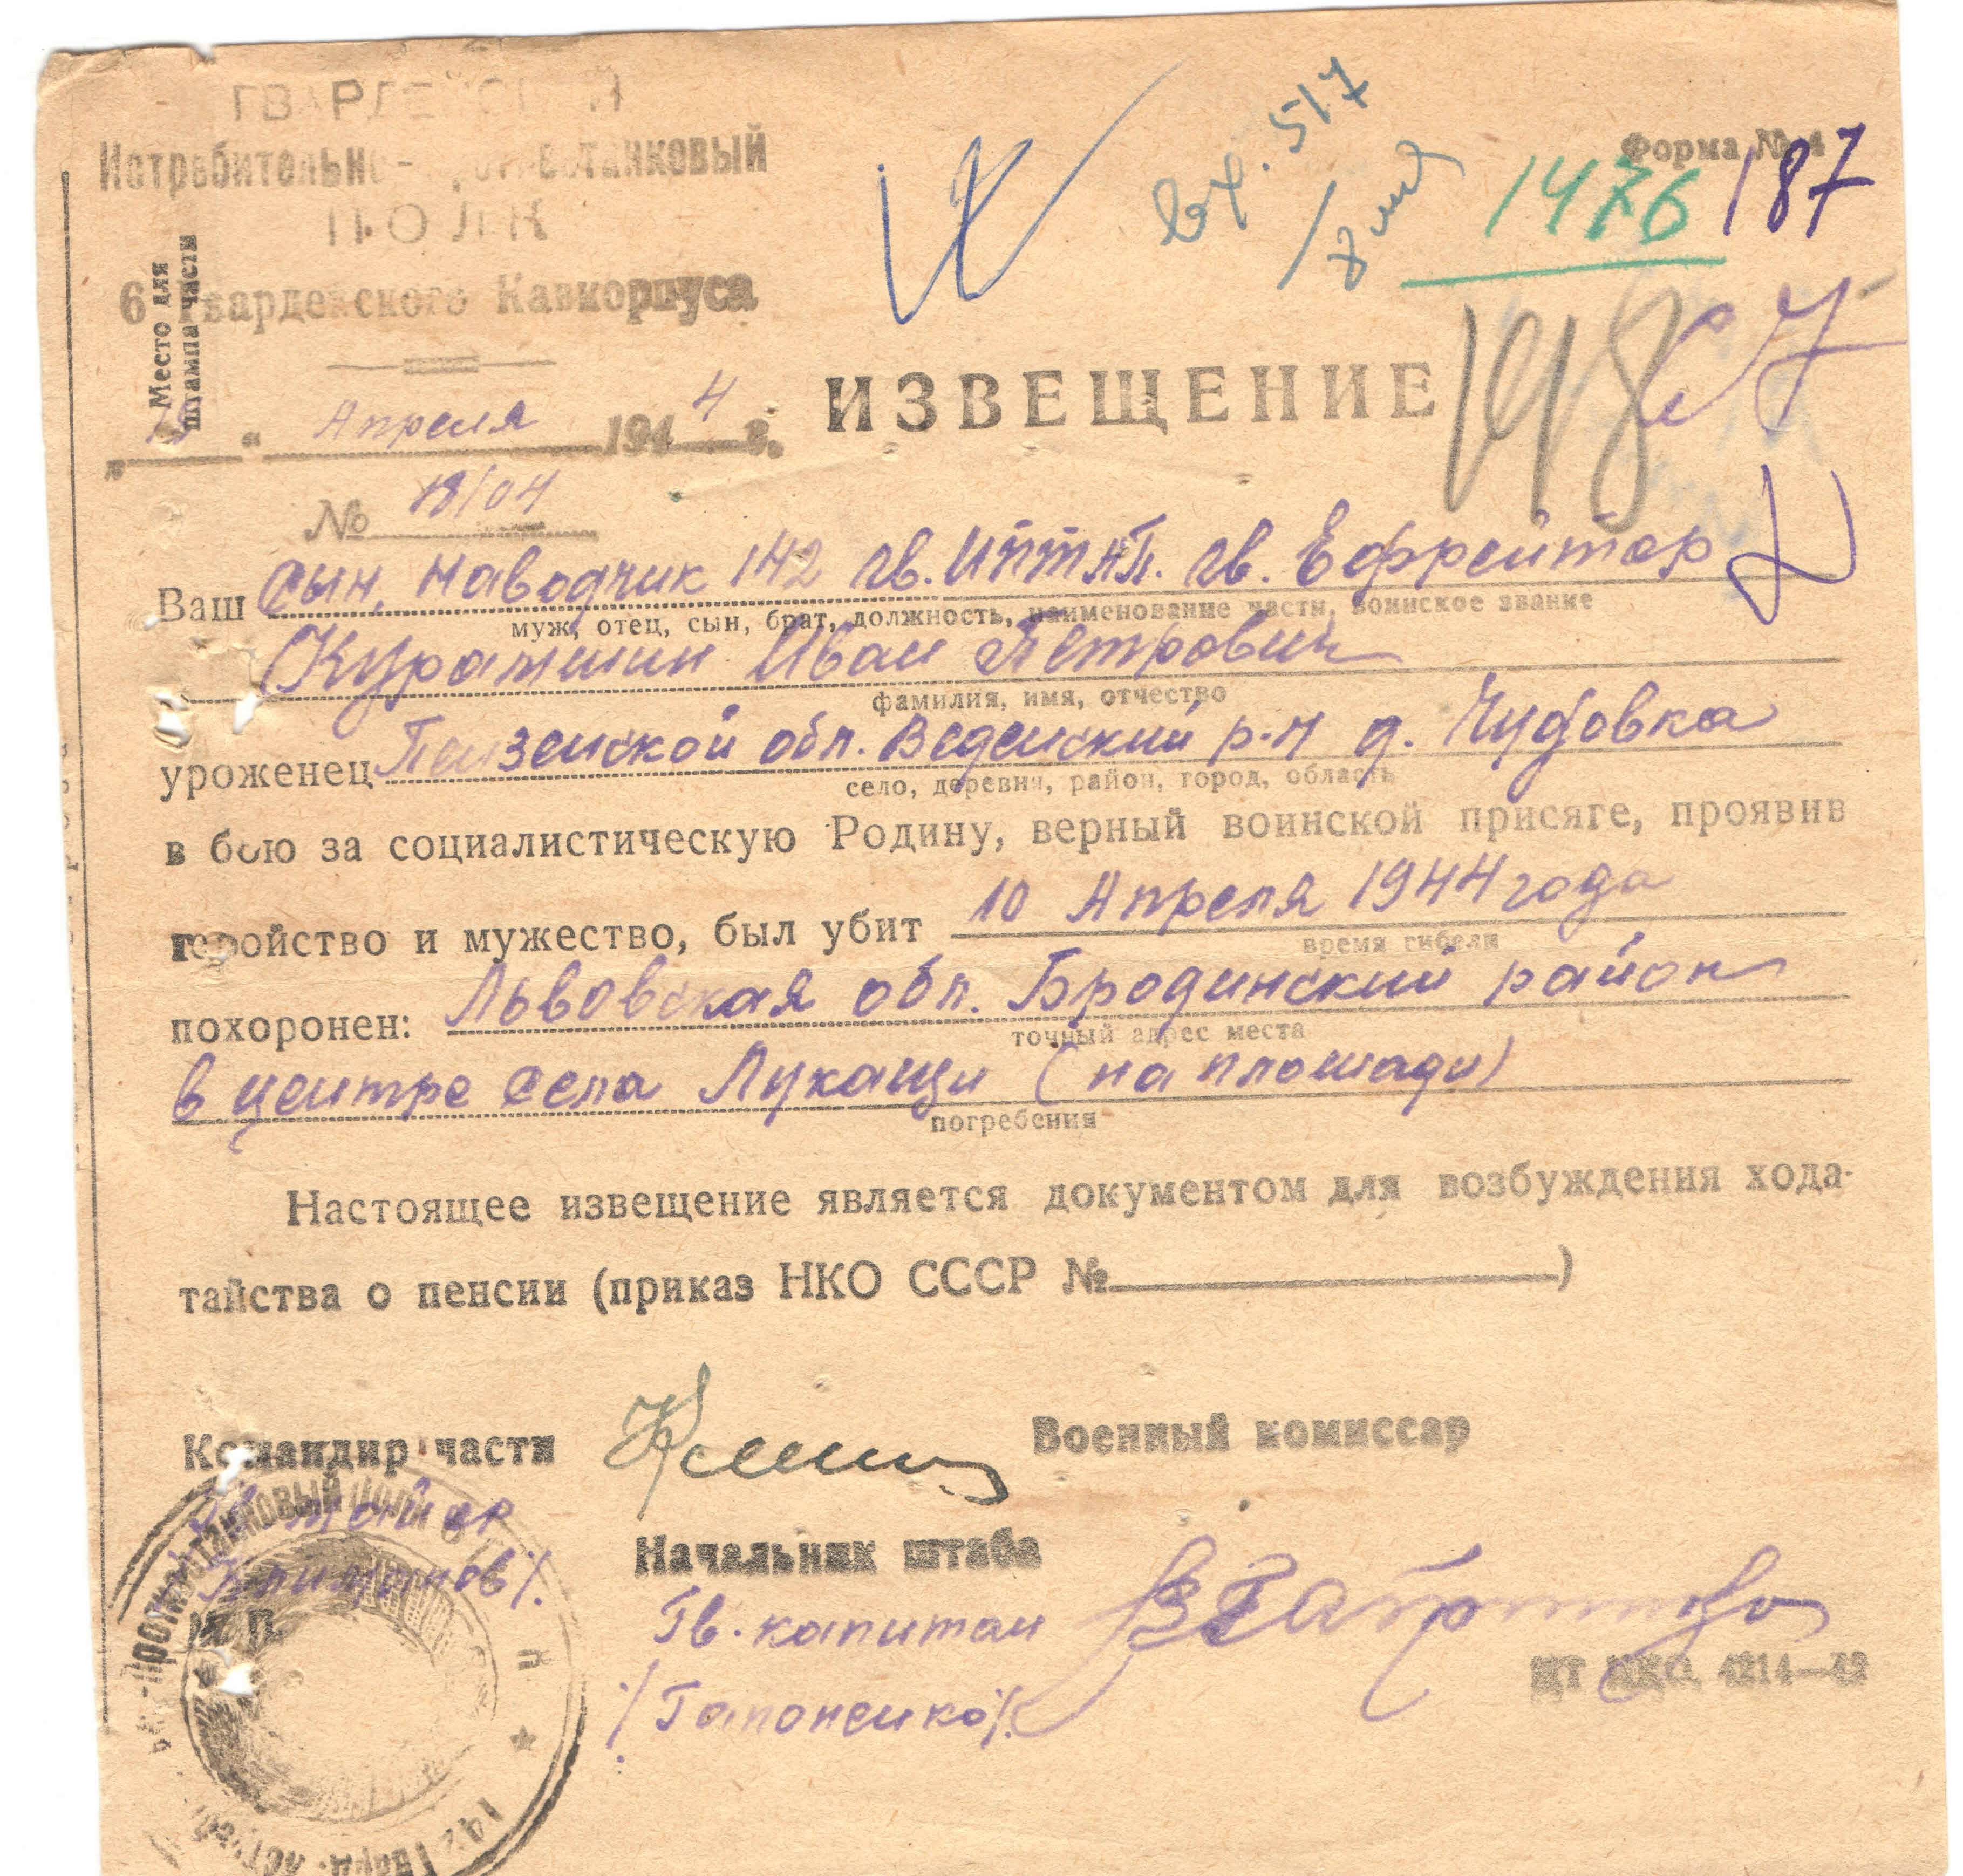 ГВАРДЕЙСКИЙ
Истребительно-противотанковый
ПОЛК
6 Гвардейского Кавкорпуса
Место для
штампа части
Апреля 1944 г.
№ 18/04
Вх. 517
Форма № 4
1476
187
ИЗВЕЩЕНИЕ
Ваш сын, наводчик 142 гв. ИПТАП. гв. Ефрейтор
муж, отец, сын, брат, должность, наименование части, воинское звание
Курамшин Иван Петрович
фамилия, имя, отчество
уроженец Пензенской обл. Веденский р-н д. Чудовка
село, деревня, район, город, область
в бою за социалистическую Родину, верный воинской присяге, проявив
геройство и мужество, был убит 10 Апреля 1944 года
время гибели
похоронен: Львовская обл. Бродинский район
точный адрес места
в центре села Лукащи (на площади)
погребения
Настоящее извещение является документом для возбуждения хода-
тайства о пенсии (приказ НКО СССР № )
Командир части
Военный комиссар
майор
Начальник штаба
М. П.
Гв. капитан
/Гапоненко/.